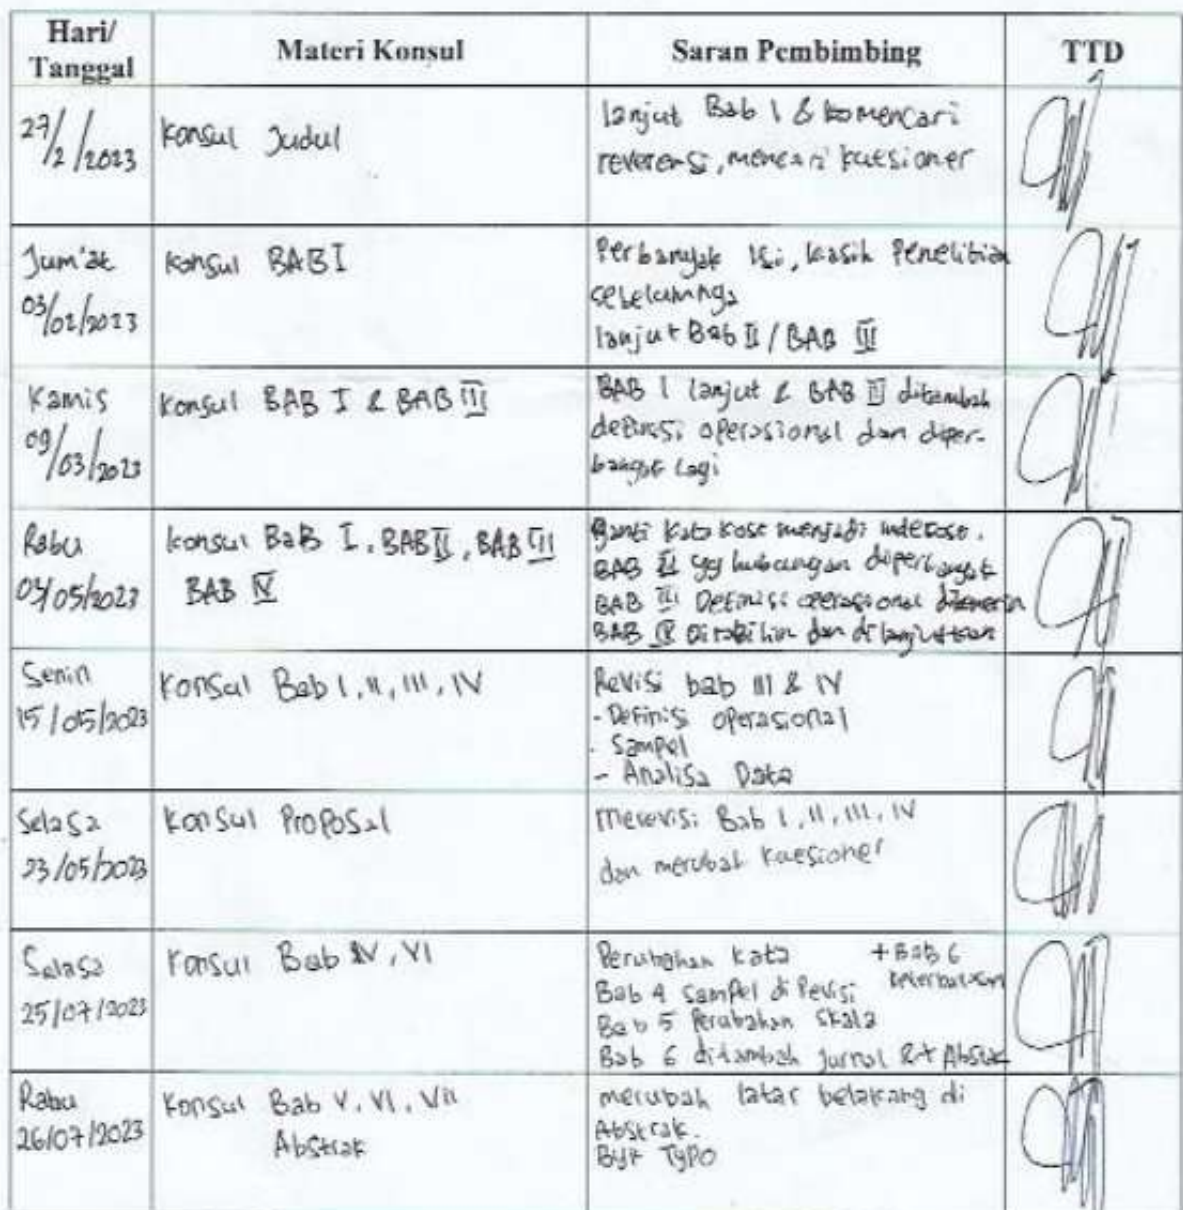 Hari/
Tanggal
Materi Konsul
Saran Pembimbing
TTD
27/2/2023
Konsul Judul
lanjut Bab 1 & mencari
reverensi, mencari kuesioner
Jum'at
03/02/2023
Konsul BAB I
Perbanyak Isi, kasih Penelitian
sebelumnya
lanjut Bab II / BAB III
Kamis
09/03/2023
Konsul BAB I & BAB III
BAB 1 lanjut & BAB III ditambah
definisi operasional dan diper-
banyak lagi
Rabu
03/05/2023
Konsul BaB I, BAB II, BAB III
BAB IV
Ganti kata menjadi
BAB II yg hubungan diperbanyak
BAB III Definisi operasional
BAB IV Dirapihin dan dilanjutkan
Senin
15/05/2023
Konsul Bab I, II, III, IV
Revisi bab III & IV
- Definisi operasional
- Sampel
- Analisa Data
Selasa
23/05/2023
Konsul Proposal
merevisi Bab I, II, III, IV
dan merubah kuesioner
Selasa
25/07/2023
Konsul Bab IV, VI
Perubahan kata + Bab 6
keterbatasan
Bab 4 sampel di Revisi
Bab 5 Perubahan skala
Bab 6 ditambah jurnal & + Abstrak
Rabu
26/07/2023
Konsul Bab V, VI, VII
Abstrak
merubah latar belakang di
Abstrak.
Byk Typo